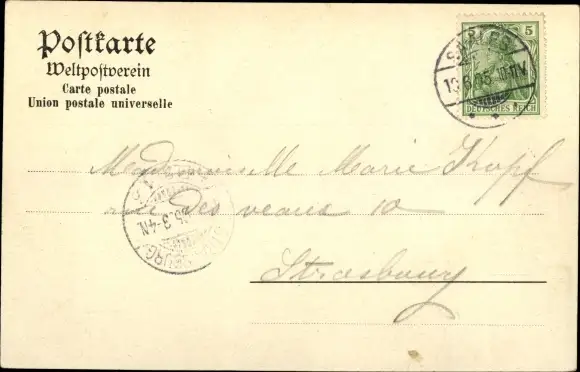 Postkarte
Weltpostverein
Carte postale
Union postale universelle
5
DEUTSCHES REICH
Mademoiselle Marie Kopf
rue des veaux 10
Strasbourg
3-4N.